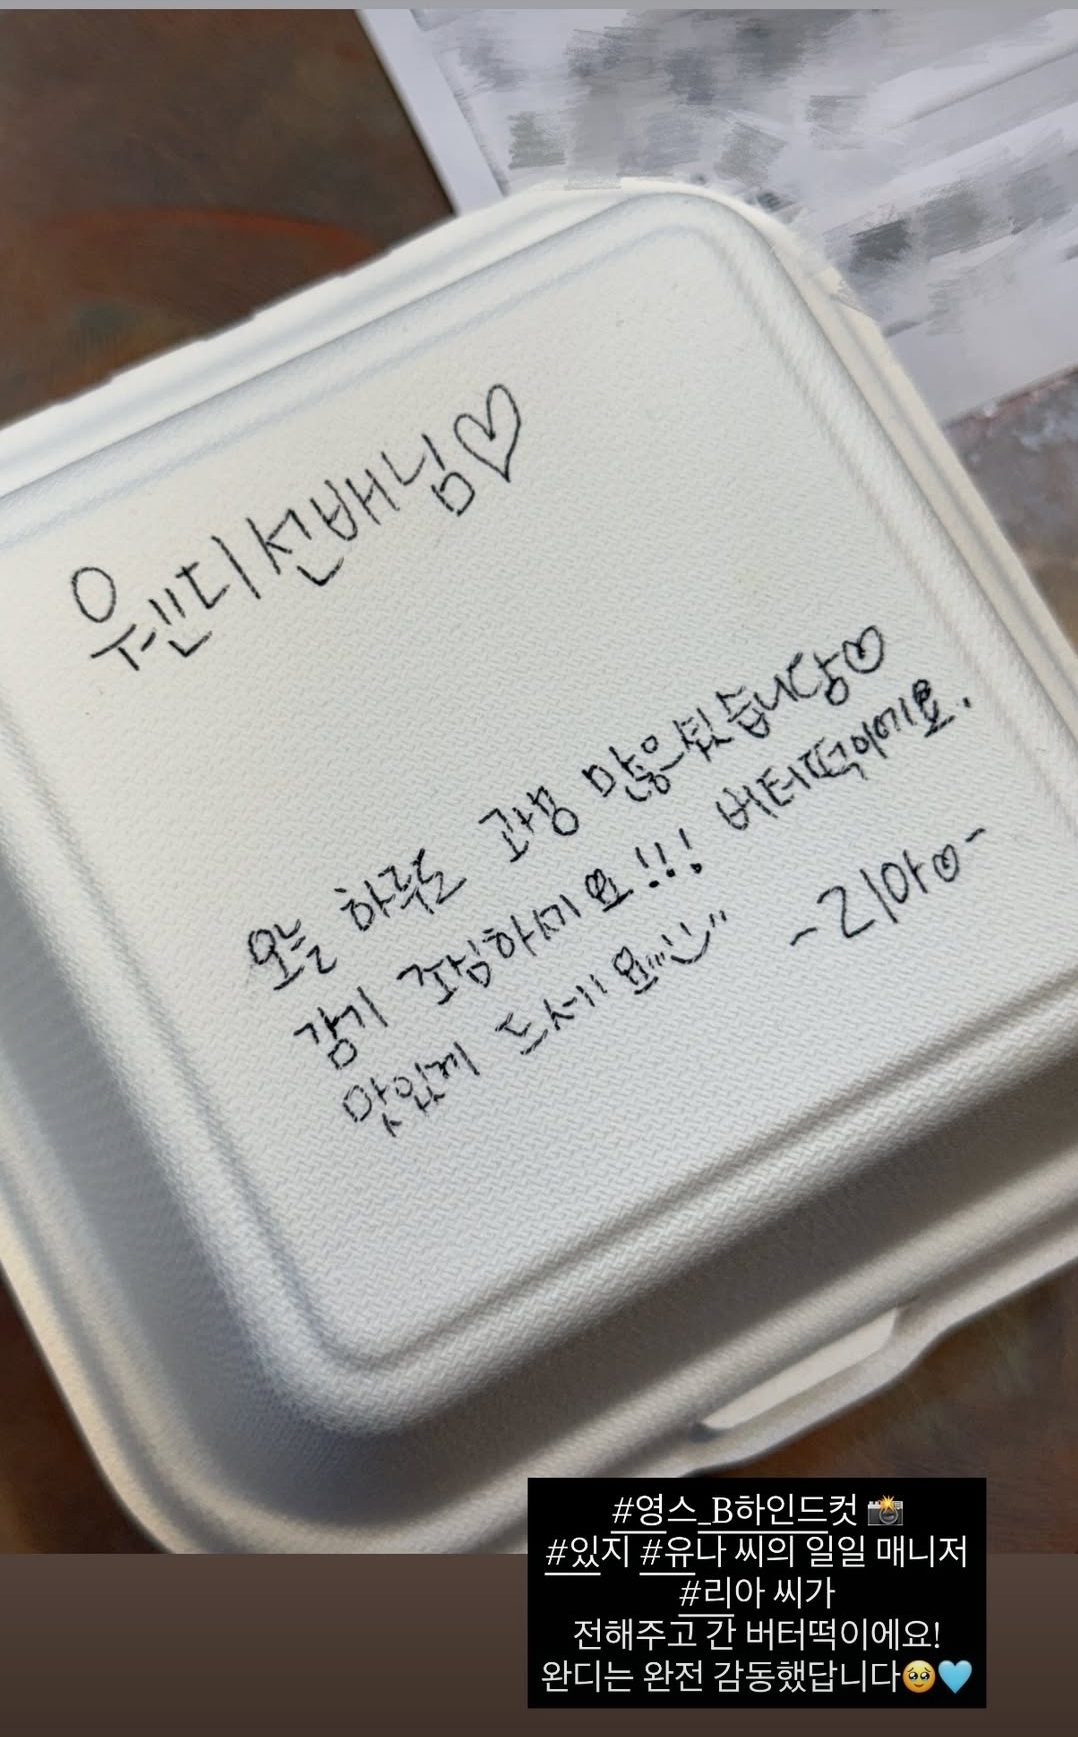 웬디선배님♡
오늘 하루도 고생 많으셨습니당♡
감기 조심하세요!!! 버터떡이에요.
맛있게 드세요
~리아♡~
#영스_B하인드컷 📸
#있지 #유나 씨의 일일 매니저
#리아 씨가
전해주고 간 버터떡이에요!
완디는 완전 감동했답니다🥹🩵